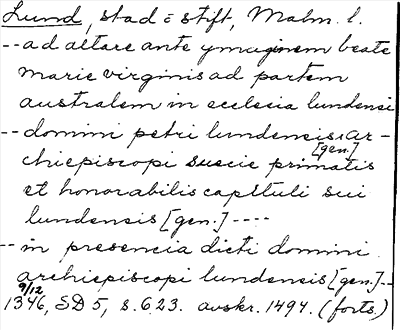 Lund, stad o stift, Malm. l.
-- ad altare ante ymaginem beate
marie virginis ad partem
australem in ecclesia lundensi
-- domini petri lundensis, ar-
chiepiscopi suecie primatis [gen.]
et honorabilis capituli sui
lundensis [gen.] ----
-- in presencia dicti domini
archiepiscopi lundensis [gen.] --
9/12
1346, SD 5, s. 623. avskr. 1494. (forts.)